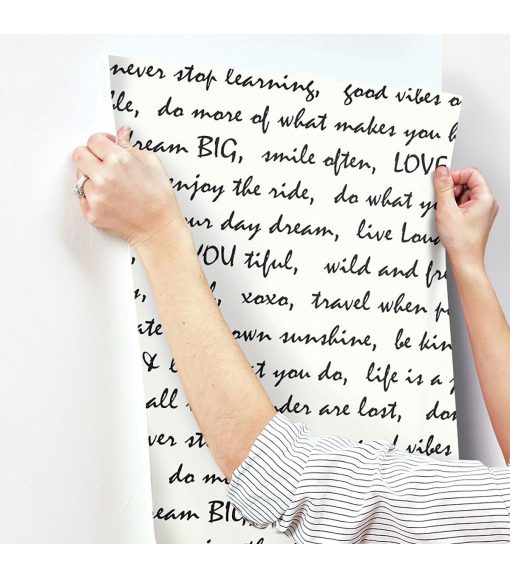 never stop learning, good vibes o
ble, do more of what makes you h
dream BIG, smile often, LOVE
enjoy the ride, do what y
ur day dream, live Loud
YOU tiful, wild and fre
xoxo, travel when p
ate own sunshine, be kin
& l t you do, life is a
all der are lost, don
ver st d vibes
do m
eam BIG,